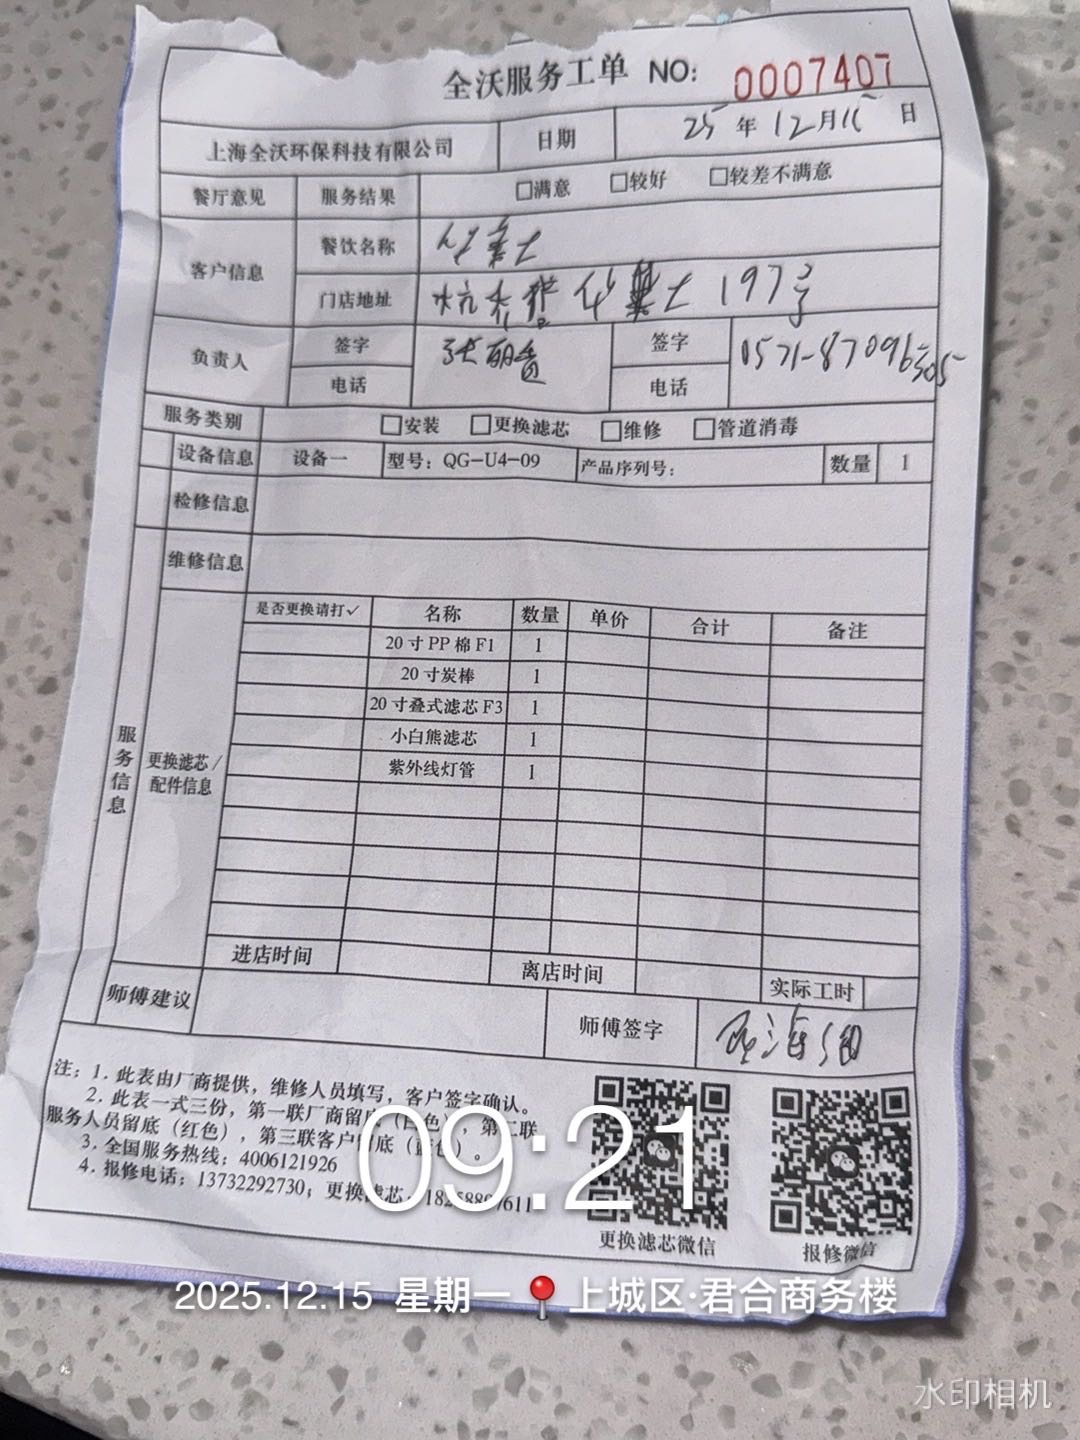 全沃服务工单 NO: 0007407
上海全沃环保科技有限公司 日期 25年12月15日
餐厅意见 服务结果 □满意 □较好 □较差不满意
客户信息 餐饮名称
门店地址 197号
负责人 签字 签字 0571-87096305
电话 电话
服务类别 □安装 □更换滤芯 □维修 □管道消毒
设备信息 设备一 型号：QG-U4-09 产品序列号： 数量 1
检修信息
维修信息
服务信息
更换滤芯/配件信息
是否更换请打✓ 名称 数量 单价 合计 备注
20寸PP棉F1 1
20寸炭棒 1
20寸叠式滤芯F3 1
小白熊滤芯 1
紫外线灯管 1
进店时间 离店时间 实际工时
师傅建议 师傅签字
注：1.此表由厂商提供，维修人员填写，客户签字确认。
2.此表一式三份，第一联厂商留底（白色），第二联
服务人员留底（红色），第三联客户留底（蓝色）。
3.全国服务热线：4006121926
4.报修电话：13732292730；更换滤芯：
更换滤芯微信 报修微信
09:21
2025.12.15 星期一 上城区·君合商务楼
水印相机